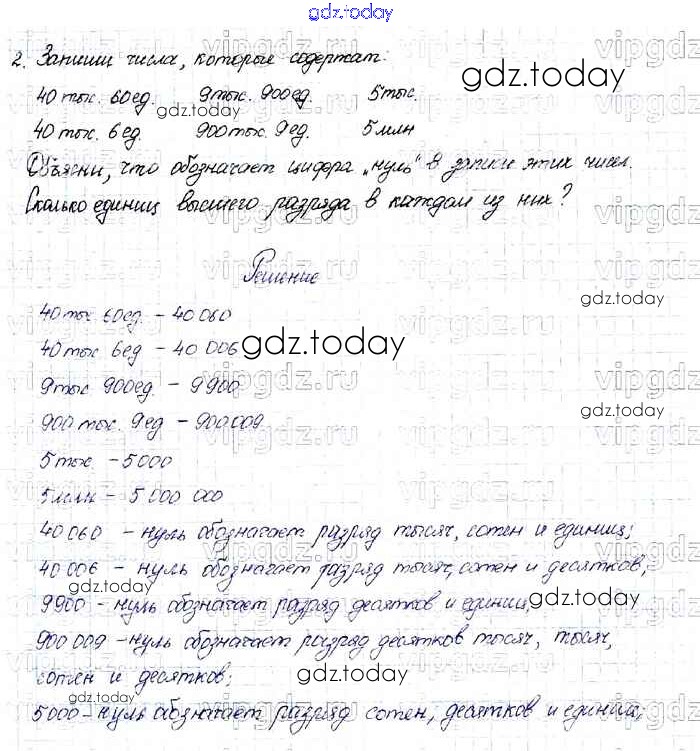 gdz.today
2. Запиши числа, которые содержат:
gdz.today
40 тыс. 60 ед. 9 тыс. 900 ед. 5 тыс.
gdz.today
40 тыс. 6 ед. 900 тыс. 9 ед. 5 млн
Объясни, что обозначает цифра „нуль" в записи этих чисел.
Сколько единиц высшего разряда в каждом из них?
Решение
gdz.today
40 тыс 60 ед – 40 060
40 тыс. 6 ед – 40 006
gdz.today
9 тыс 900 ед. – 9 900
900 тыс. 9 ед – 900 009
gdz.today
5 тыс. – 5000
5 млн – 5 000 000
40 060 – нуль обозначает разряд тысяч, сотен и единиц;
40 006 – нуль обозначает разряд тысяч, сотен и десятков;
gdz.today
9 900 – нуль обозначает разряд десятков и единиц
gdz.today
900 009 – нуль обозначает разряд десятков тысяч, тысяч,
сотен и десятков;
gdz.today
5000 – нуль обозначает разряд сотен, десятков и единиц;
gdz.today
vipgdz.ru